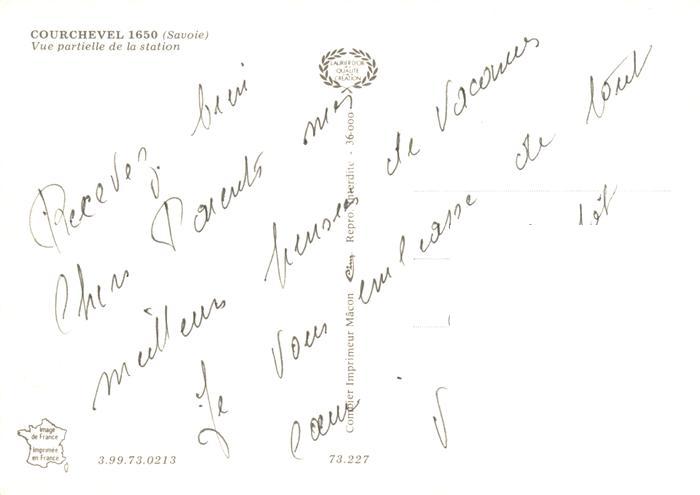 COURCHEVEL 1650 (Savoie)
Vue partielle de la station
LAURIER D'OR
QUALITÉ
CRÉATION
Recevez bien
Chers Parents mes
meilleurs pensées de vacances
Je vous embrasse de tout
Combier Imprimeur Mâcon Repro. interdite - 36.000
Image
de France
Imprimée
en France
3.99.73.0213
73.227